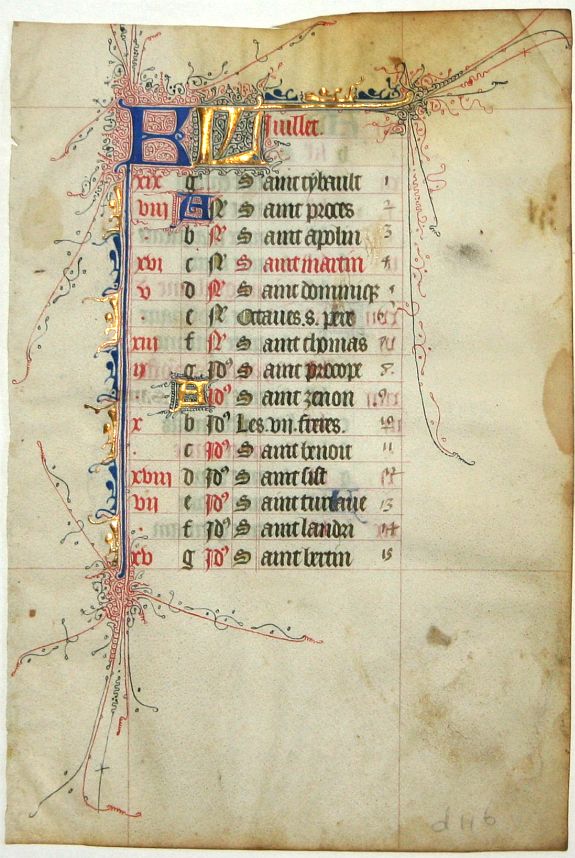 KL Juillet.
xix g S aint tybault 1
viii A N S aint proces 2
b N S aint apolin 3
xvi c N S aint martin 4
v d N S aint dominiq
e N Octaues .s. pere 6
xiii f N S aint thomas
ii g Id9 S aint procope 8
A Id9 S aint zenon 9
x b Id9 Les .vii. freres. 10
c Id9 S aint benoit 11
xviii d Id9 S aint sist 12
vii e Id9 S aint 13
f Id9 S aint landri 14
xv g Id9 S aint bertin 15